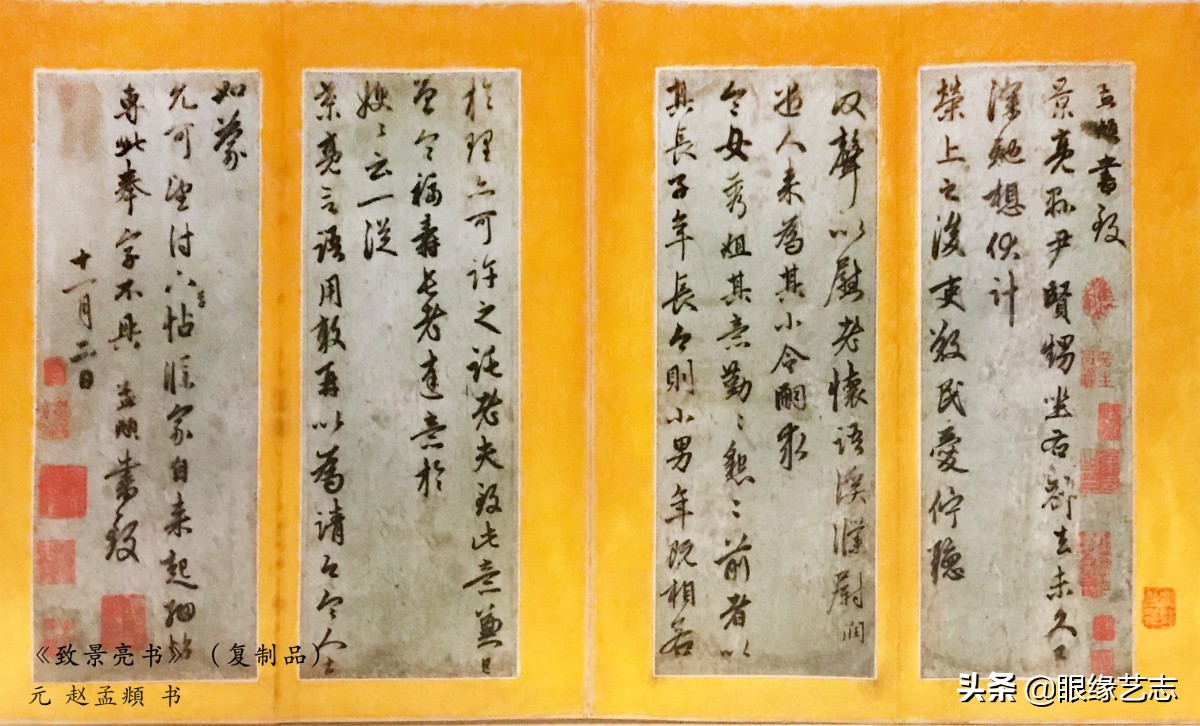 孟頫書致
景亮縣尹賢甥坐右別去未久已
深馳想伏計
榮上之後吏敬民愛佇聽
政聲以慰老懷語溪濮尉潤
遣人来為其小令嗣求
令女秀姐其意勤〻懇〻前者以
其長子年長今則小男年既相若
於理亦可許之託老夫致此意兼已
曾令福壽長老達意於
嫂〻云一從
景亮言語用敢再以為請
如蒙
允可望付下吉帖濮家自来起細帖
專此奉字不具 孟頫書致
十一月二日
《致景亮书》（复制品）
元 赵孟頫 书
头条 @眼缘艺志